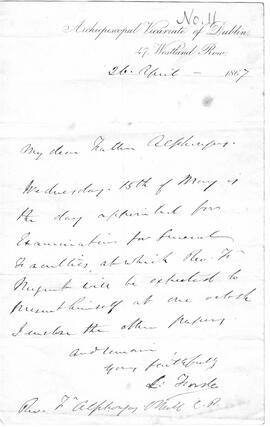 No. 11
Archiepiscopal Vicariate of Dublin
47. Westland Row.
26 April — 1867
My dear Father Alphonsus.
Wednesday. 15th of May is
the day appointed for
Examination for General
Faculties, at which Rev. Fr
Nugent will be expected to
present himself at one oclock
I enclose the other papers
and remain
yours faithfully
L. Forde
Revd. Fr. Alphonsus